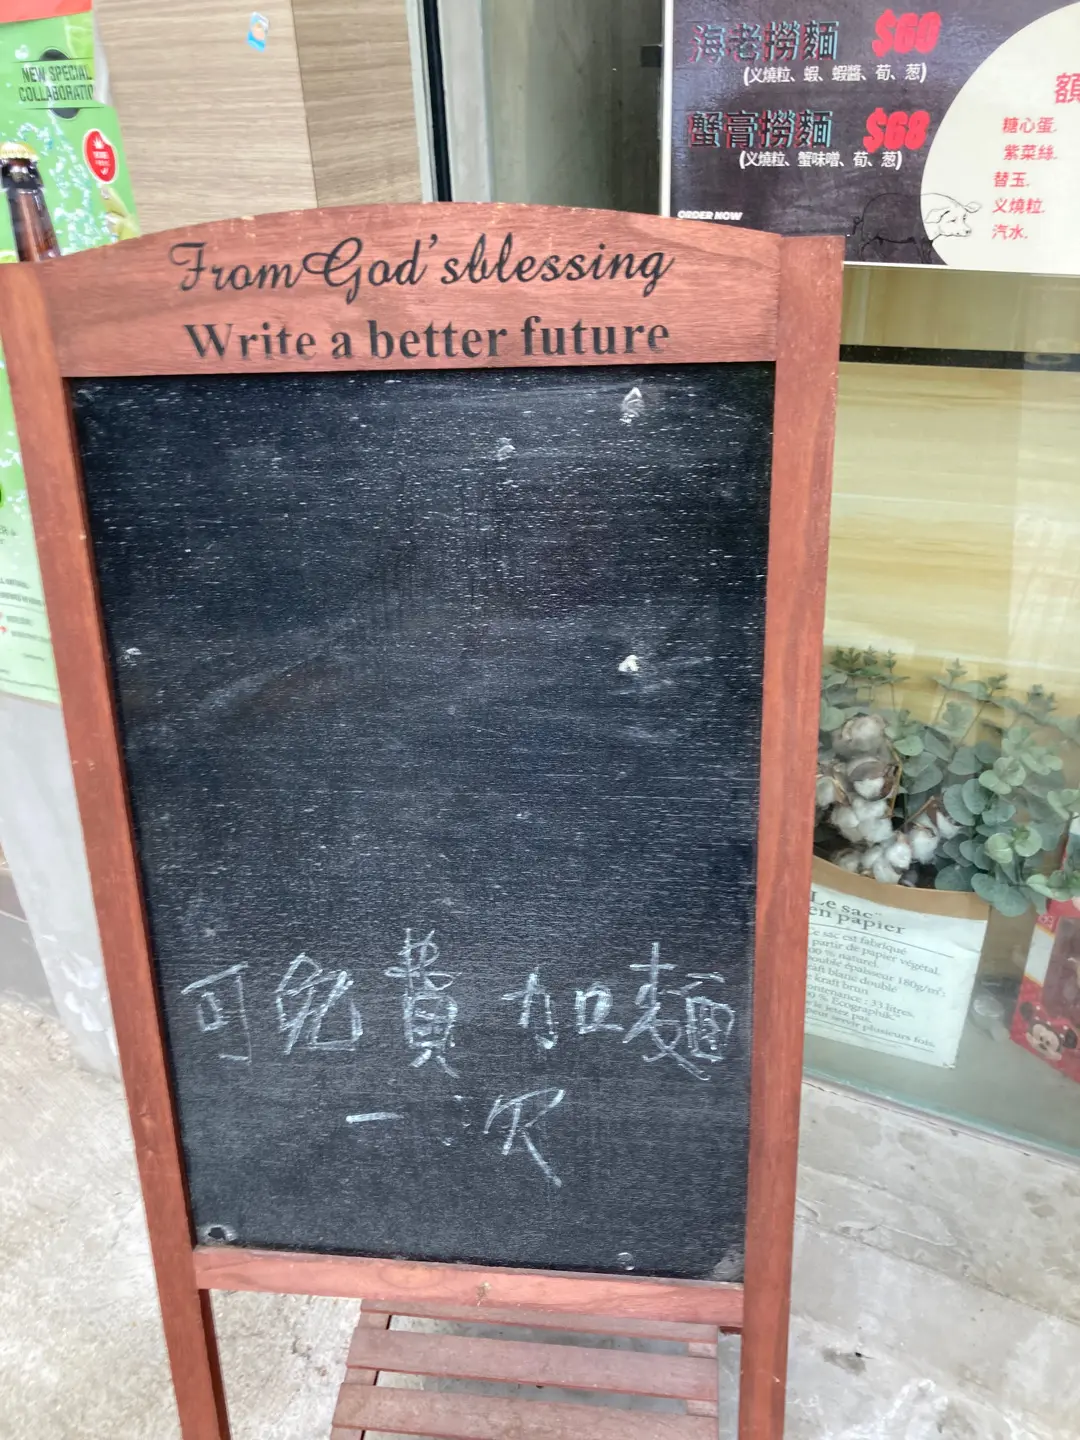 NEW SPECIAL
COLLABORATIO
海老撈麵 $60
(义燒粒、蝦、蝦醬、荀、葱)
蟹膏撈麵 $68
(义燒粒、蟹味噌、荀、葱)
ORDER NOW
額
糖心蛋.
紫菜絲.
替玉.
义燒粒.
汽水.
From God'sblessing
Write a better future
可免費 加麵
一次
Le sac
en papier
Ce sac est fabriqué
partir de papier végétal.
00 % naturel.
Double épaisseur 180g/m²:
kraft blanc doublé
kraft brun
contenance : 33 litres.
00 % Ecographik.
le jetez pas
peut servir plusieurs fois.